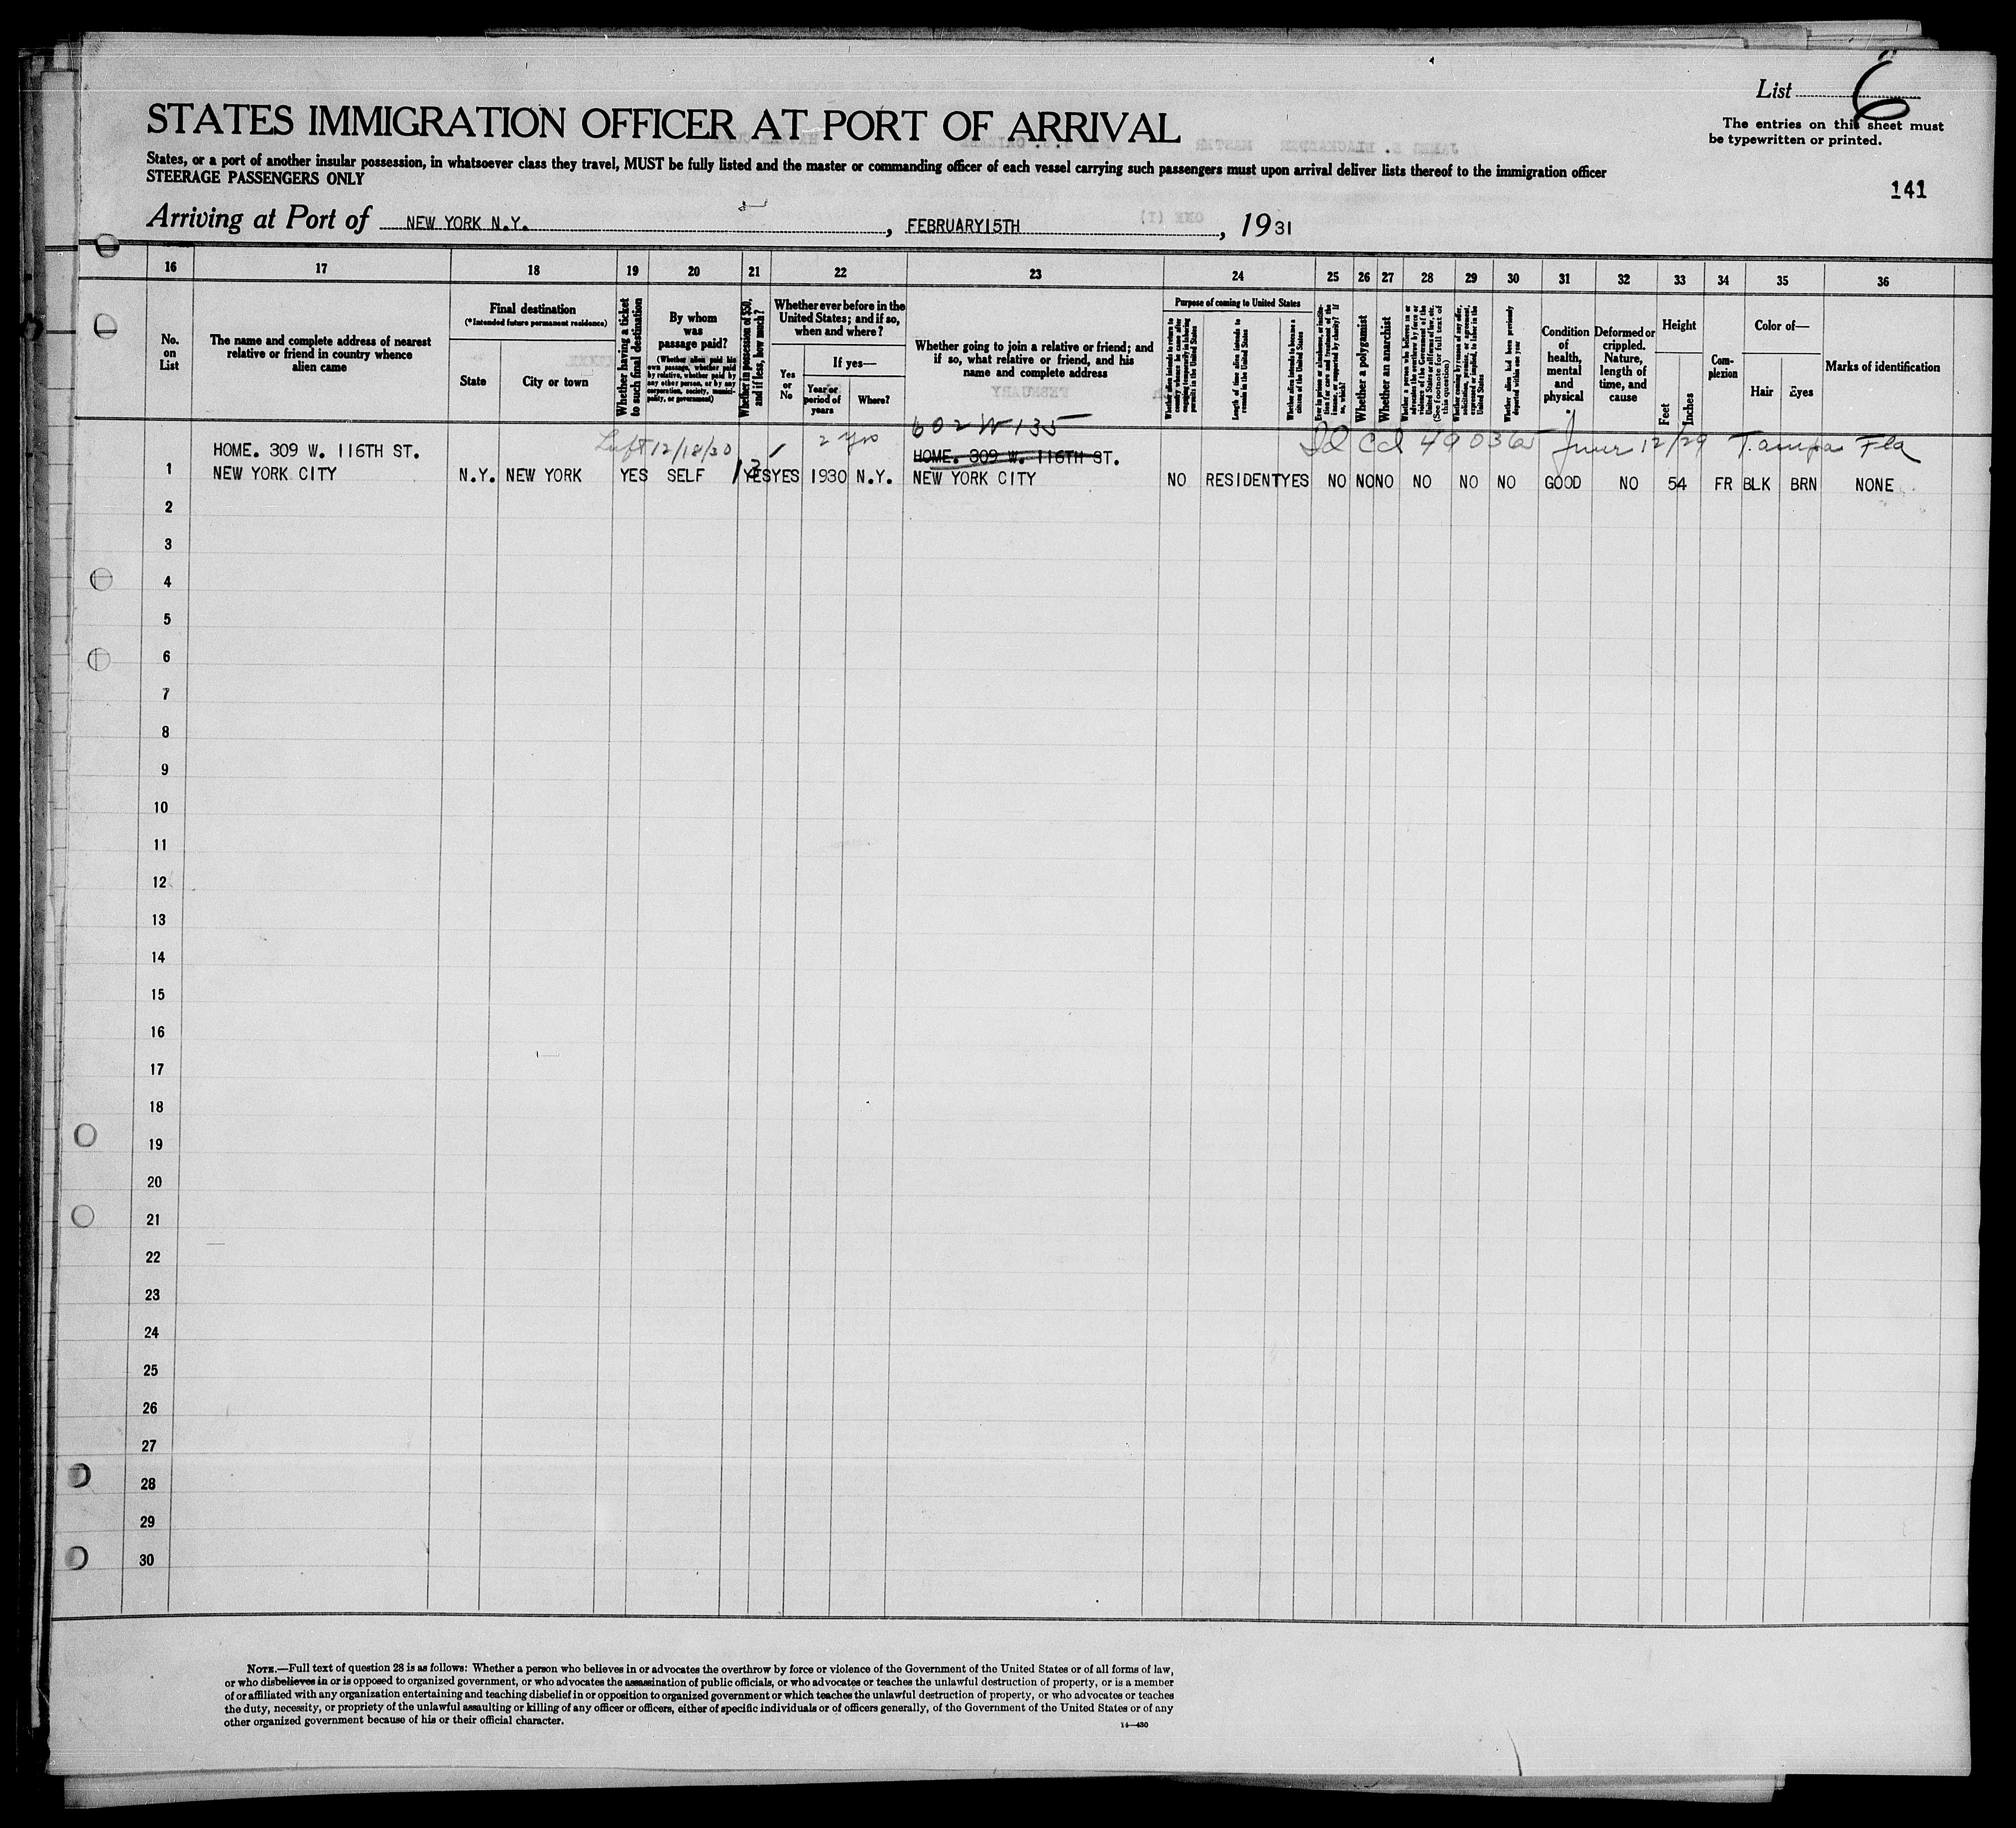 List 6
STATES IMMIGRATION OFFICER AT PORT OF ARRIVAL
The entries on this sheet must
be typewritten or printed.
States, or a port of another insular possession, in whatsoever class they travel, MUST be fully listed and the master or commanding officer of each vessel carrying such passengers must upon arrival deliver lists thereof to the immigration officer
STEERAGE PASSENGERS ONLY
141
Arriving at Port of NEW YORK N.Y. , FEBRUARY15TH , 1931
16 17 18 19 20 21 22 23 24 25 26 27 28 29 30 31 32 33 34 35 36
No. on List
The name and complete address of nearest relative or friend in country whence alien came
Final destination
(*Intended future permanent residence)
State
City or town
Whether having a ticket to such final destination
By whom was passage paid?
(Whether alien paid his own passage, whether paid by relative, whether paid by any other person, or by any corporation, society, municipality, or government)
Whether in possession of $50, and if less, how much?
Whether ever before in the United States; and if so, when and where?
Yes or No
If yes—
Year or period of years
Where?
Whether going to join a relative or friend; and if so, what relative or friend, and his name and complete address
Purpose of coming to United States
Whether alien intends to return to country whence he came after engaging temporarily in laboring pursuits in the United States
Length of time alien intends to remain in the United States
Whether alien intends to become a citizen of the United States
Ever in prison or almshouse, or institution for care and treatment of the insane, or supported by charity? If so, which?
Whether a polygamist
Whether an anarchist
Whether a person who believes in or advocates the overthrow by force or violence of the Government of the United States or all forms of law, etc. (See footnote for full text of this question)
Whether coming by reason of any offer, solicitation, promise, or agreement, expressed or implied, to labor in the United States
Whether alien had been previously deported within one year
Condition of health, mental and physical
Deformed or crippled. Nature, length of time, and cause
Height
Feet
Inches
Complexion
Color of—
Hair
Eyes
Marks of identification
602 W 135
Left 12/18/30 2 yrs Id Cd 490365 12/29 Tampa Fla
HOME. 309 W. 116TH ST. HOME. 309 W. 116TH ST.
1 NEW YORK CITY N.Y. NEW YORK YES SELF YES YES 1930 N.Y. NEW YORK CITY NO RESIDENT YES NO NO NO NO NO NO GOOD NO 54 FR BLK BRN NONE
2
3
4
5
6
7
8
9
10
11
12
13
14
15
16
17
18
19
20
21
22
23
24
25
26
27
28
29
30
NOTE.—Full text of question 28 is as follows: Whether a person who believes in or advocates the overthrow by force or violence of the Government of the United States or of all forms of law,
or who disbelieves in or is opposed to organized government, or who advocates the assassination of public officials, or who advocates or teaches the unlawful destruction of property, or is a member
of or affiliated with any organization entertaining and teaching disbelief in or opposition to organized government or which teaches the unlawful destruction of property, or who advocates or teaches
the duty, necessity, or propriety of the unlawful assaulting or killing of any officer or officers, either of specific individuals or of officers generally, of the Government of the United States or of any
other organized government because of his or their official character.
14—430